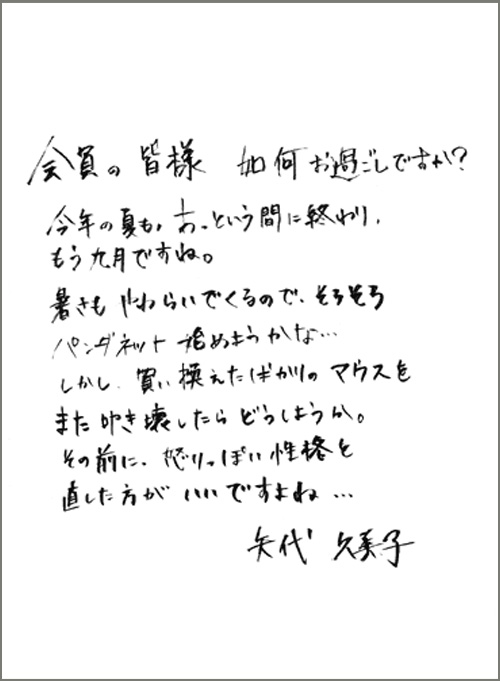 会員の皆様 如何お過ごしですか?
今年の夏も、あっという間に終わり、
もう九月ですね。
暑さもやわらいでくるので、そろそろ
パンダネット始めようかな…
しかし、買い換えたばかりのマウスを
また叩き壊したらどうしようか。
その前に、怒りっぽい性格を
直した方がいいですよね…
矢代 久美子